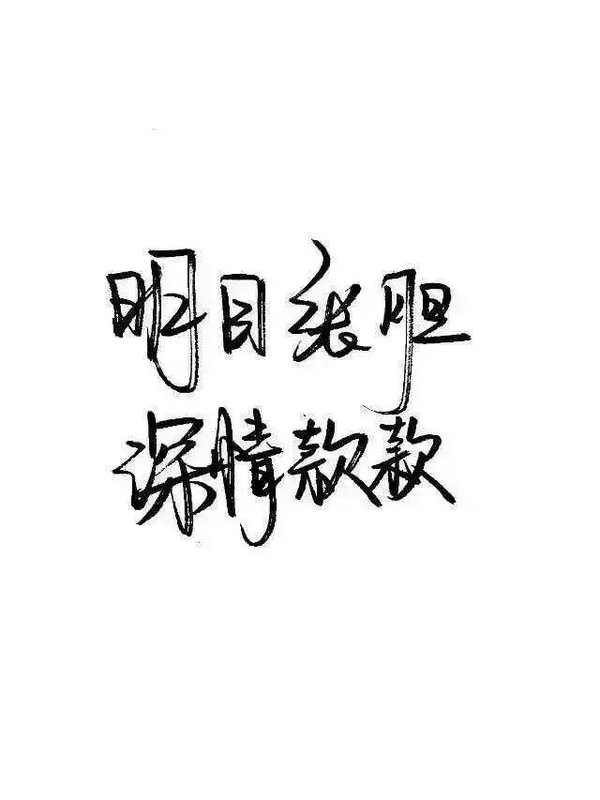 明目张胆
深情款款